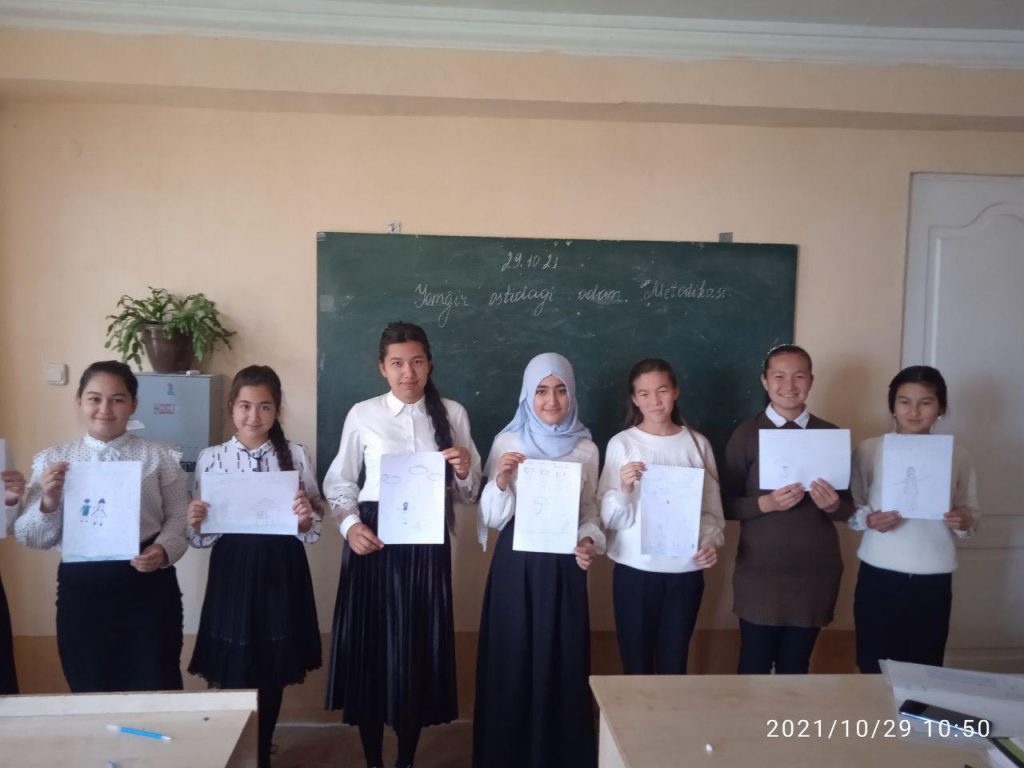 29.10.21
Yomğir ostidagi odam Metodikasi
2021/10/29 10:50